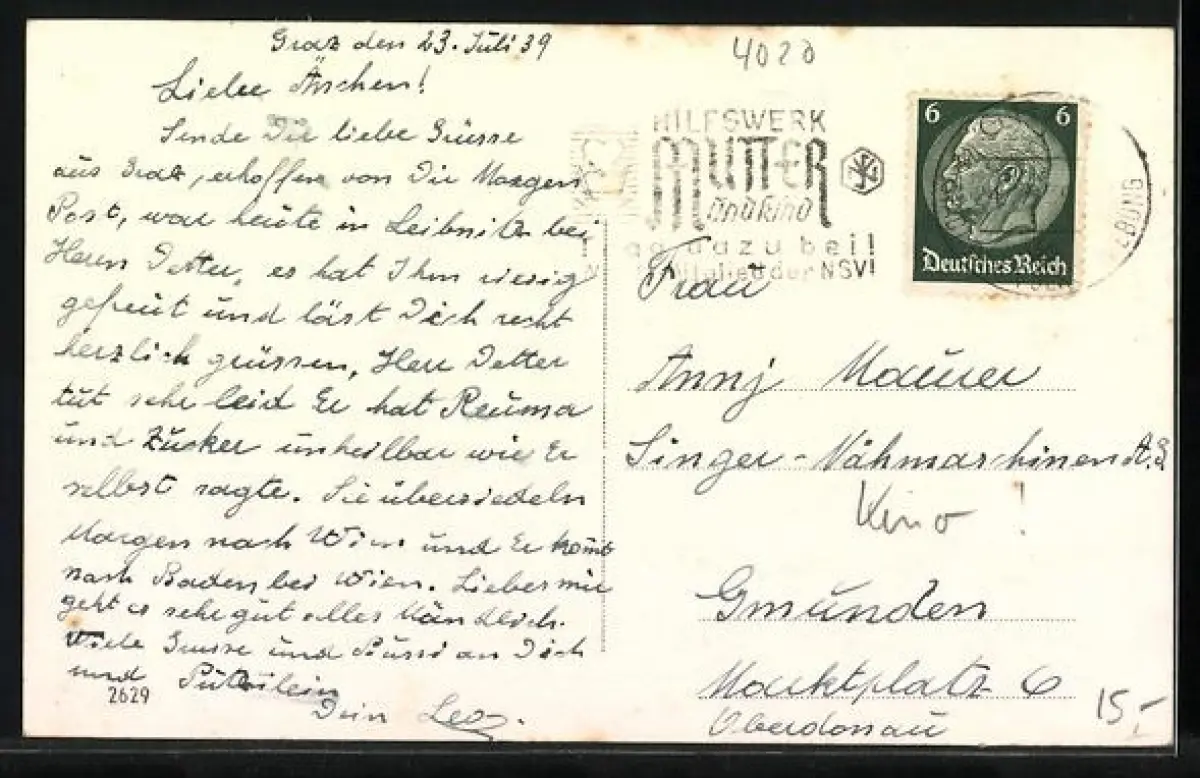 Graz den 23. Juli 39
Liebe Ännchen!
Sende Dir liebe Grüsse
aus Graz, erhoffen von Dir Morgen
Post, war heute in Leibnitz bei
Herrn Detter, es hat Ihm riesig
gefreut und läst Dich recht
herzlich grüssen, Herr Detter
tut sehr leid Er hat Reuma
und Zucker unheilbar wie Er
selbst sagte. Sie übersiedeln
Morgen nach Wien und Er komt
nach Baden bei Wien. Liebes mir
geht es sehr gut alles Mündlich.
Viele Grüsse und Bussi an Dich
und
2629
Dein Leo.
4020
HILFSWERK
MUTTER
und Kind
dazu bei!
Mitglied der NSV!
6 6
Deutsches Reich
Frau
Annj Maurer
Singer-Nähmaschinen A.G
Kino !
Gmunden
Marktplatz 6
Oberdonau
15,-